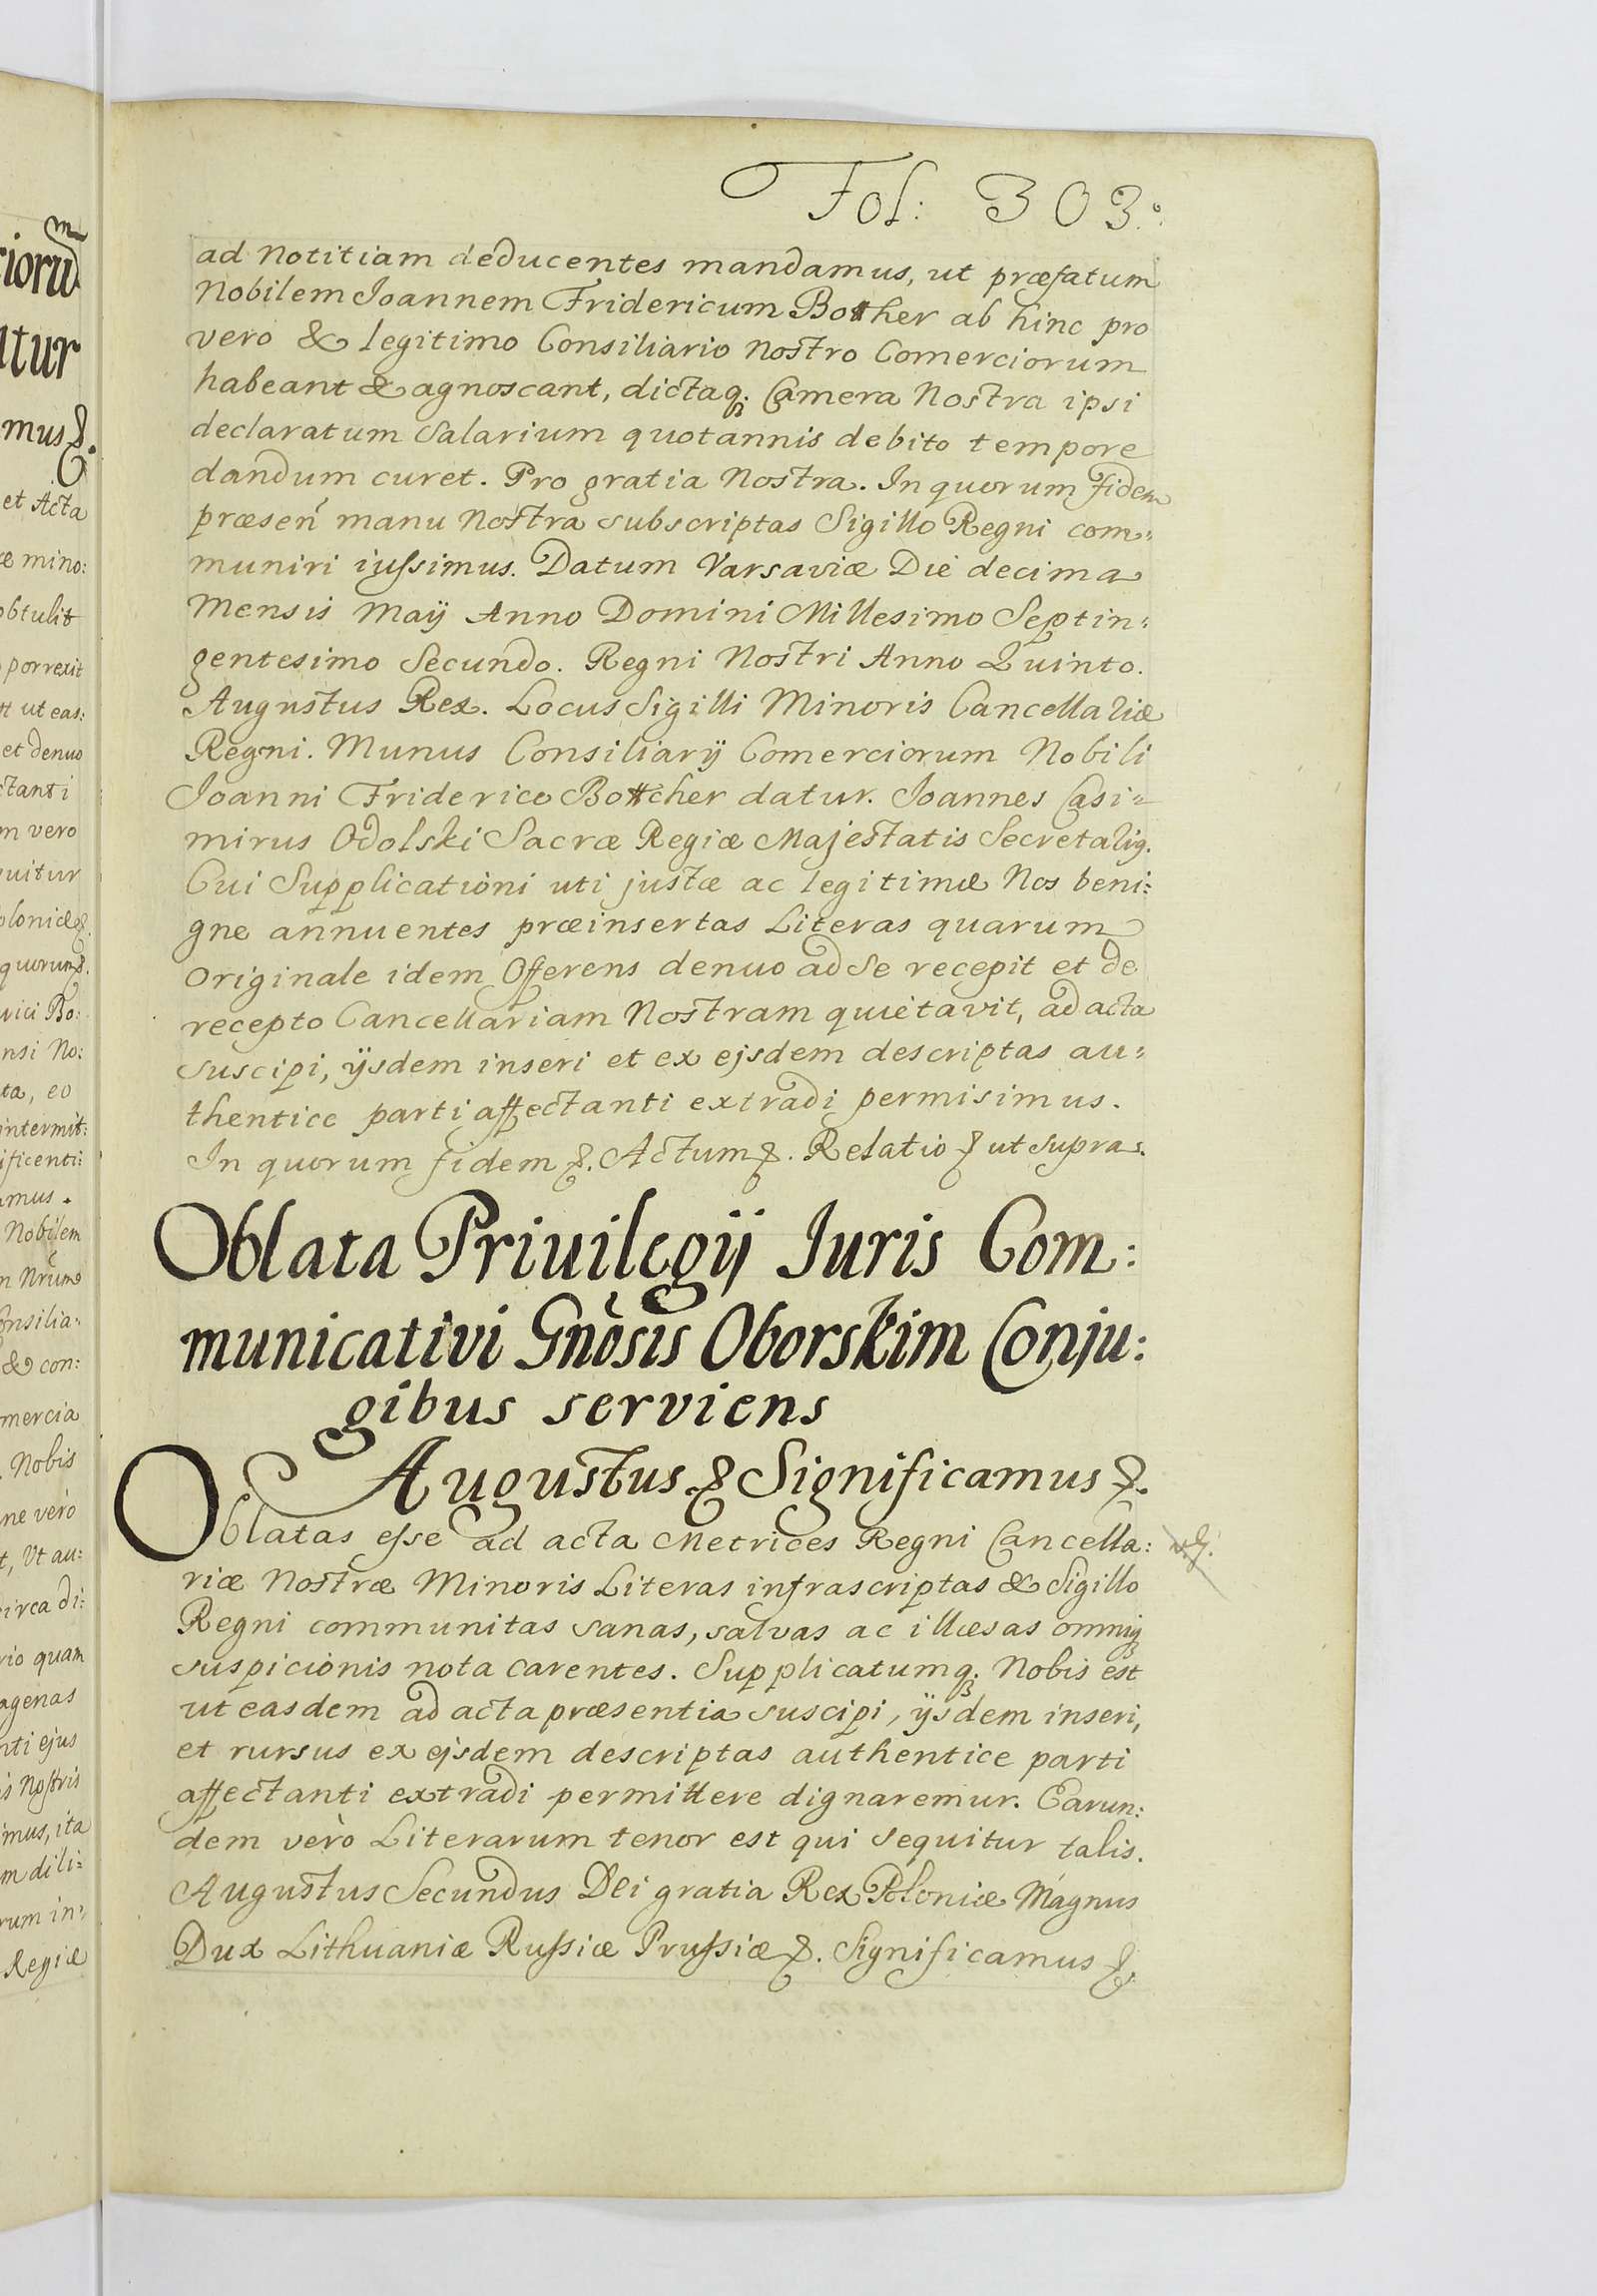 Fol: 303.
ad Notitiam deducentes mandamus, ut præfatum
Nobilem Joannem Fridericum Bother ab hinc pro
vero & legitimo Consiliario Nostro Comerciorum
habeant & agnoscant, dictaq; Camera Nostra ipsi
declaratum Salarium quotannis debito tempore
dandum curet. Pro gratia Nostra. In quorum fidem
præsen manu Nostra subscriptas Sigillo Regni com=
muniri iussimus. Datum Varsaviæ Die decima
Mensis Maij Anno Domini Millesimo Septin=
gentesimo Secundo. Regni Nostri Anno Quinto.
Augustus Rex. Locus Sigilli Minoris Cancellariæ
Regni. Munus Consiliarij Comerciorum Nobili
Joanni Friderico Bottcher datur. Joannes Casi=
mirus Odolski Sacræ Regiæ Majestatis Secretari9.
Cui Supplicationi uti justæ ac legitimæ Nos beni=
gne annuentes præinsertas Literas quarum
Originale idem Offerens denuo ad se recepit et de
recepto Cancellariam Nostram quietavit, ad acta
suscipi, ijsdem inseri et ex ejsdem descriptas au=
thentice parti affectanti extradi permisimus.
In quorum fidem &. Actum &. Relatio & ut supra.
Oblata Priuilegij Juris Com:
municativi Gnosis Oborskim Conju:
gibus serviens
Augustus & Significamus &.
Oblatas esse ad acta Metrices Regni Cancella:
riæ Nostræ Minoris Literas infrascriptas & Sigillo
Regni communitas sanas, salvas ac illæsas omniq;
suspicionis nota carentes. Supplicatumq; Nobis est
ut easdem ad acta præsentia suscipi, ijsdem inseri,
et rursus ex ejsdem descriptas authentice parti
affectanti extradi permittere dignaremur. Earun:
dem verò Literarum tenor est qui sequitur talis.
Augustus Secundus Dei gratia Rex Poloniæ Magnus
Dux Lithuaniæ Russiæ Prussiæ &. Significamus &.